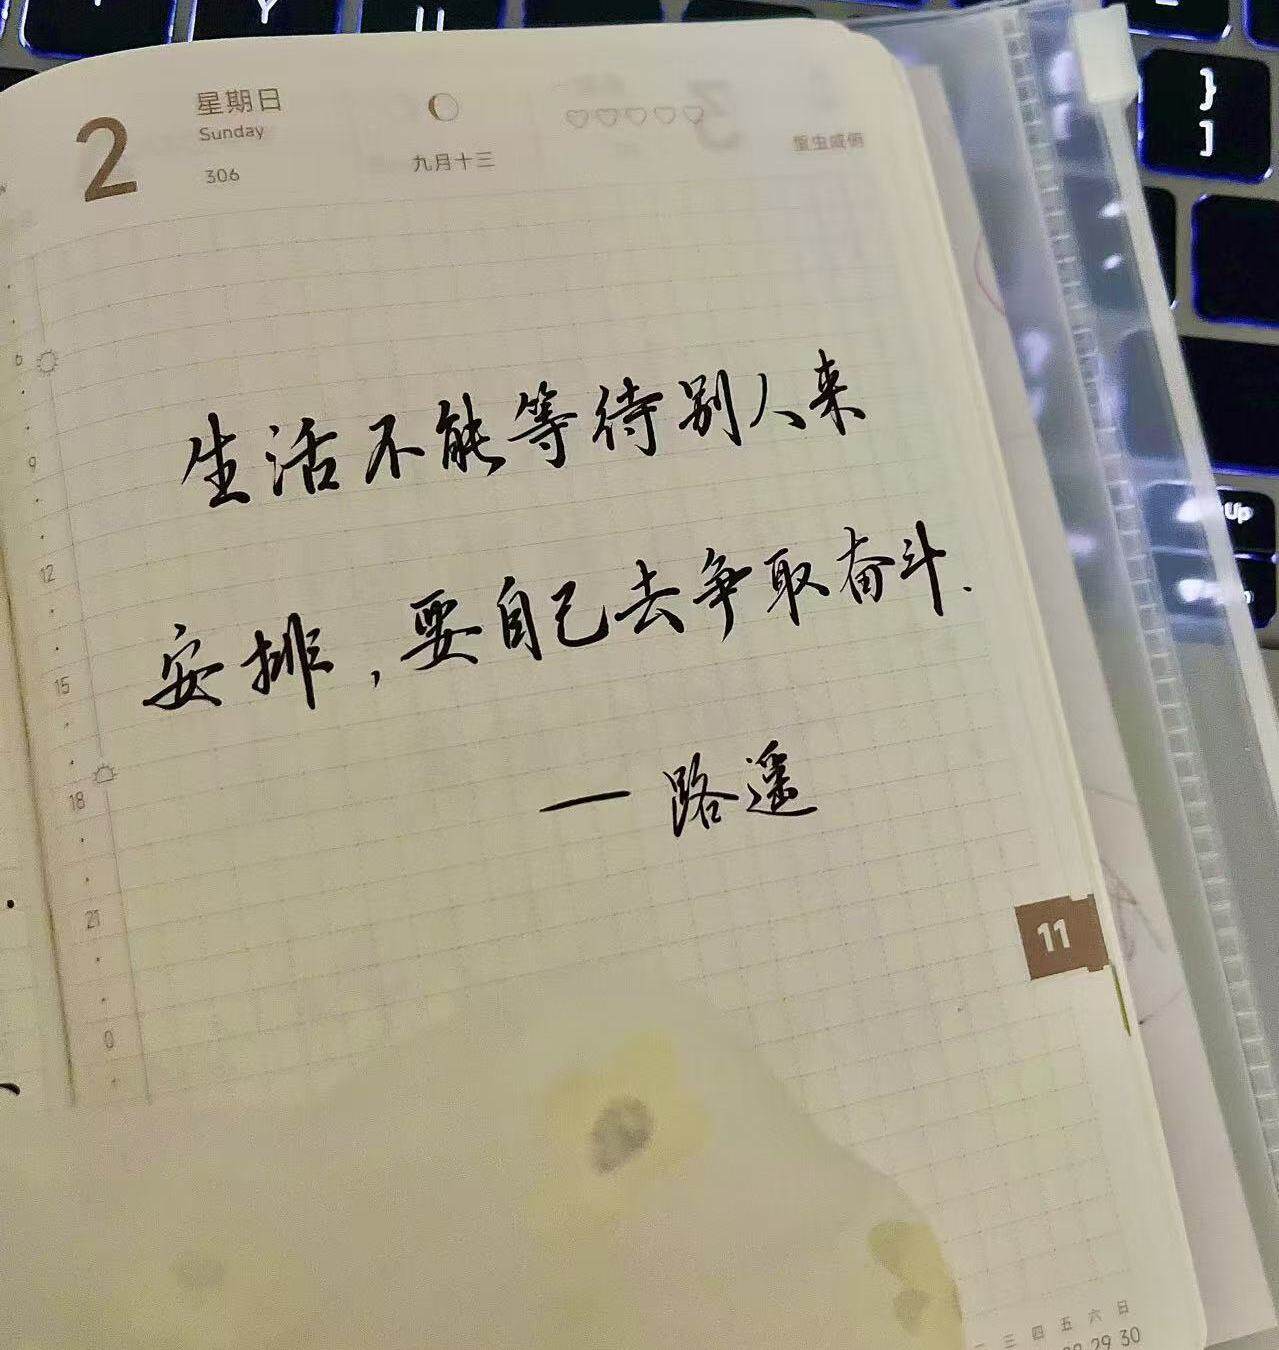 2
星期日
Sunday
306
九月十三
蛰虫咸俯
生活不能等待别人来
安排，要自己去争取奋斗.
— 路遥
6
9
12
15
18
21
0
11
三 四 五 六 日
29 30
}
]
Up